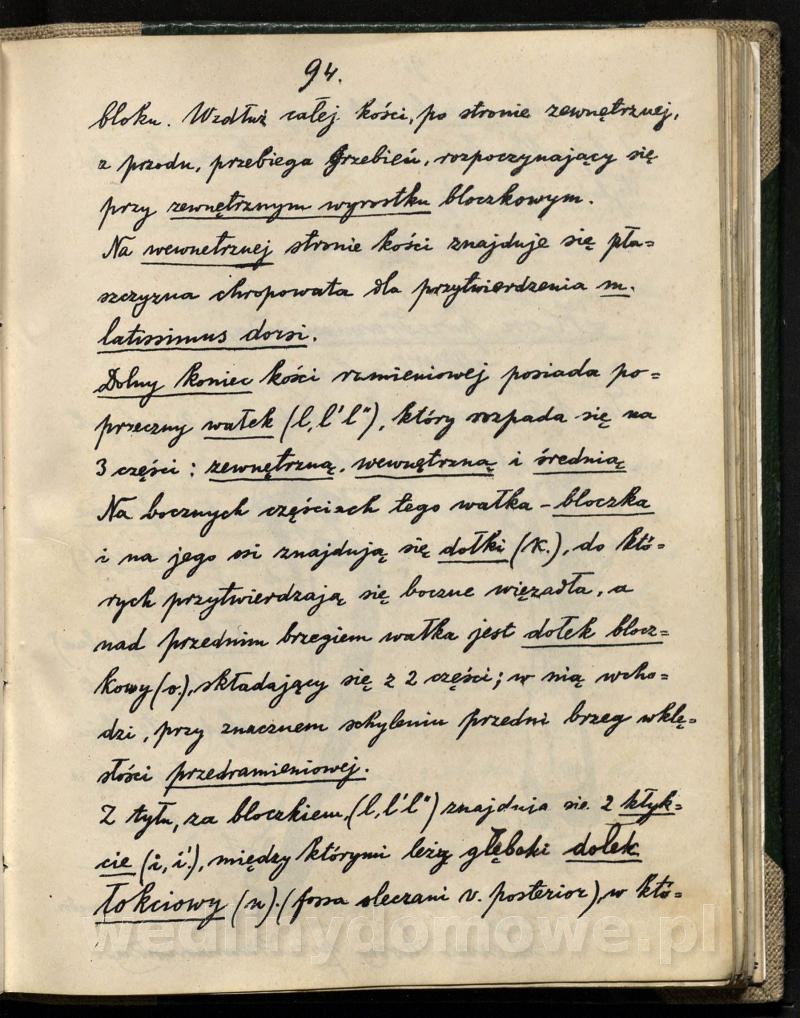 94.
bloku. Wzdłuż całej kości, po stronie zewnętrznej,
z przodu, przebiega grzebień, rozpoczynający się
przy zewnętrznym wyrostku bloczkowym.
Na wewnetrznej stronie kości znajduje się pła=
szczyzna chropowata dla przytwierdzenia m.
latissimus dorsi.
Dolny koniec kości ramieniowej posiada po=
przeczny wałek (l, l' l"), który rozpada się na
3 części: zewnętrzną, wewnętrzną i średnią
Na bocznych częściach tego wałka - bloczka
i na jego osi znajdują się dołki (k.), do któ-
rych przytwierdzają się boczne więzadła, a
nad przednim brzegiem wałka jest dołek blocz=
kowy (o.), składający się z 2 części; w nią wcho-
dzi, przy znacznem schyleniu przedni brzeg wklę-
słości przedramieniowej.
Z tyłu, za bloczkiem, (l, l' l") znajduja sie 2 kłyk=
cie (i, i'.), między którymi leży głęboki dołek
łokciowy (n).(fossa olecrani v. posterior), w któ-
wedlinydomowe.pl